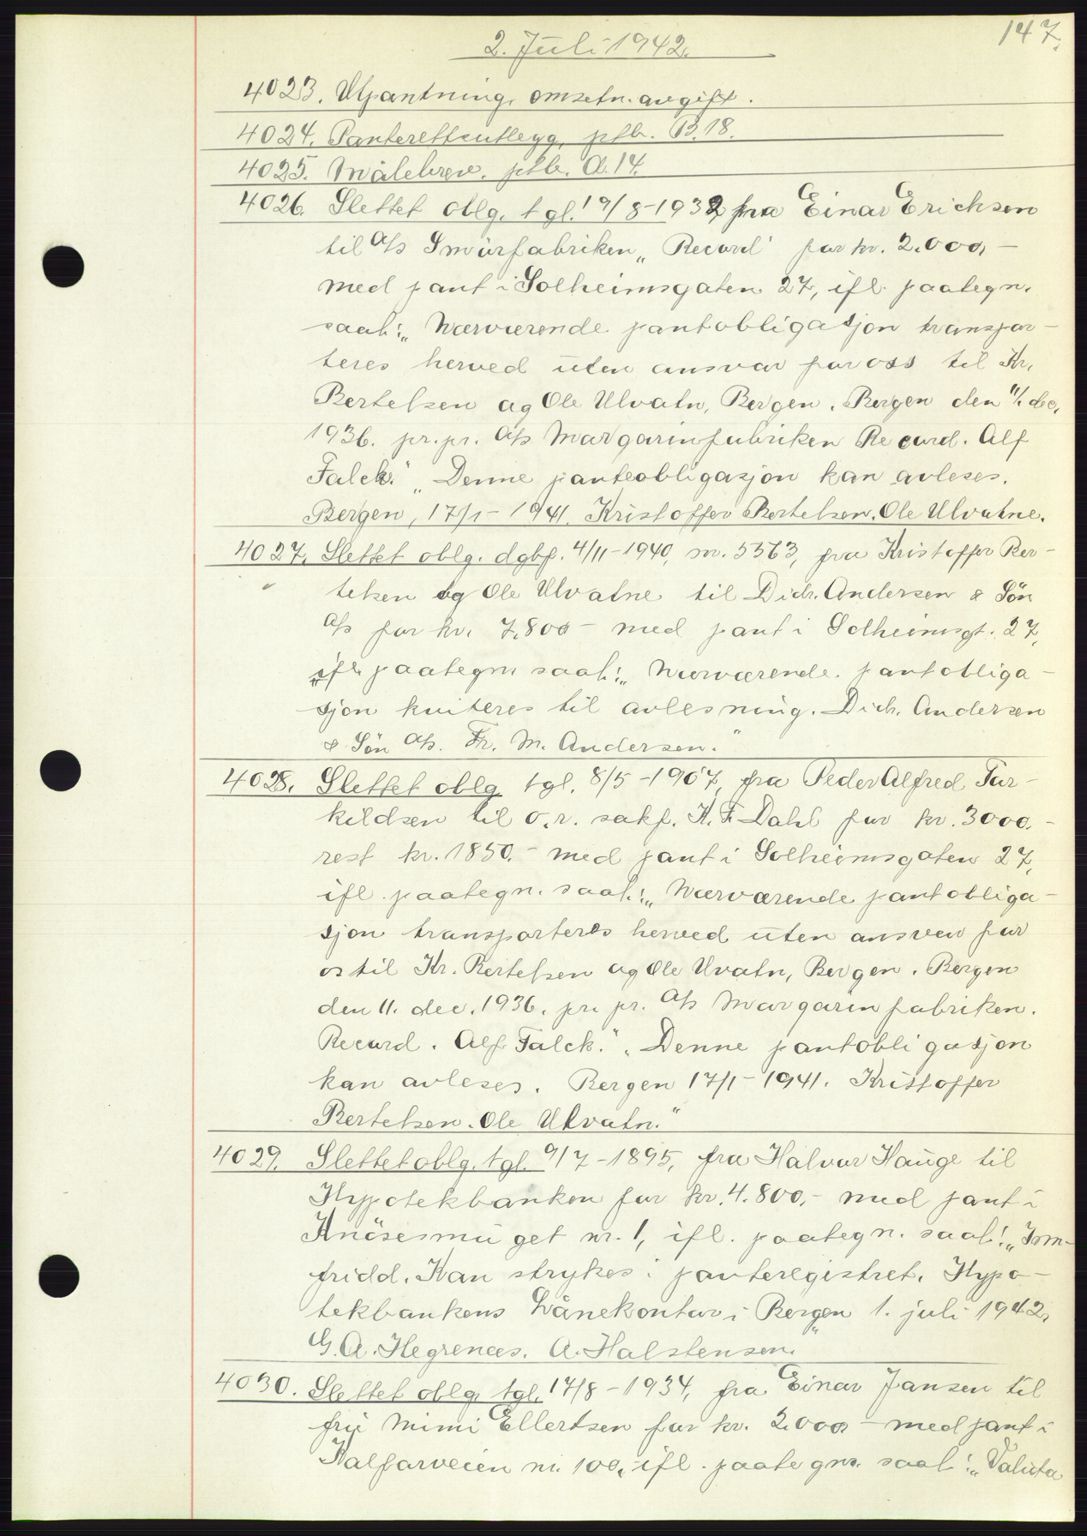 147.
2. Juli 1942.
4023. Utpantning omsetn. avgift.
4024. Panterettsutlegg, ptb. B.18.
4025. Målebrev, ptb. A.14.
4026. Slettet oblg. tgl. 19/8-1932, fra Einar Erichsen
til A/s Smörfabriken „Record" for kr. 2.000,-
med pant i Solheimsgaten 27, ifl. paategn.
saal: „Nærværende pantobligasjon transpor-
teres herved uten ansvar for oss til Kr.
Bertelsen og Ole Ulvatn, Bergen. Bergen den 11/ dec.
1936. pr. pr. A/s Margarinfabriken Record. Alf
Falck." „Denne panteobligasjon kan avleses.
Bergen, 17/1-1941. Kristoffer Bertelsen. Ole Ulvatne.
4027. Slettet oblg. dgbf. 4/11-1940, nr. 5363, fra Kristoffer Ber-
telsen og Ole Ulvatne til Didr. Andersen & Sön
A/s for kr. 7.800- med pant i Solheimsgt. 27,
ifl. paategn. saal: „Nærværende pantobliga-
sjon kviteres til avlesning. Didr. Andersen
& Sön A/s. Fr. M. Andersen."
4028. Slettet oblg. tgl. 8/5-1907, fra Peder Alfred Tor-
kildsen til o.r. sakf. K. F. Dahl for kr. 3000.-
rest kr. 1850.- med pant i Solheimsgaten 27,
ifl. paategn. saal: „Nærværende pantobliga-
sjon transporteres herved uten ansvar for
os til Kr. Bertelsen og Ole Uvatn, Bergen. Bergen
den 11. dec. 1936. pr. pr. A/s Margarinfabriken.
Record. Alf Falck." „Denne pantobligasjon
kan avleses. Bergen 17/1-1941. Kristoffer
Bertelsen. Ole Ulvatn."
4029. Slettet oblg. tgl. 9/7-1895, fra Halvor Hauge til
Hypotekbanken for kr. 4.800,- med pant i
Knösesmuget nr. 1, ifl. paategn. saal: „Inn-
fridd. Kan strykes i panteregistret. Hypo-
tekbankens Lånekontor i Bergen 1. juli 1942.
G. A. Hegrenæs. A. Halstensen."
4030. Slettet oblg. tgl. 17/8-1934, fra Einar Jansen til
frü Mimi Ellertsen for kr. 2.000- med pant i
Kalfarveien nr. 100, ifl. paategn. saal: „Valuta